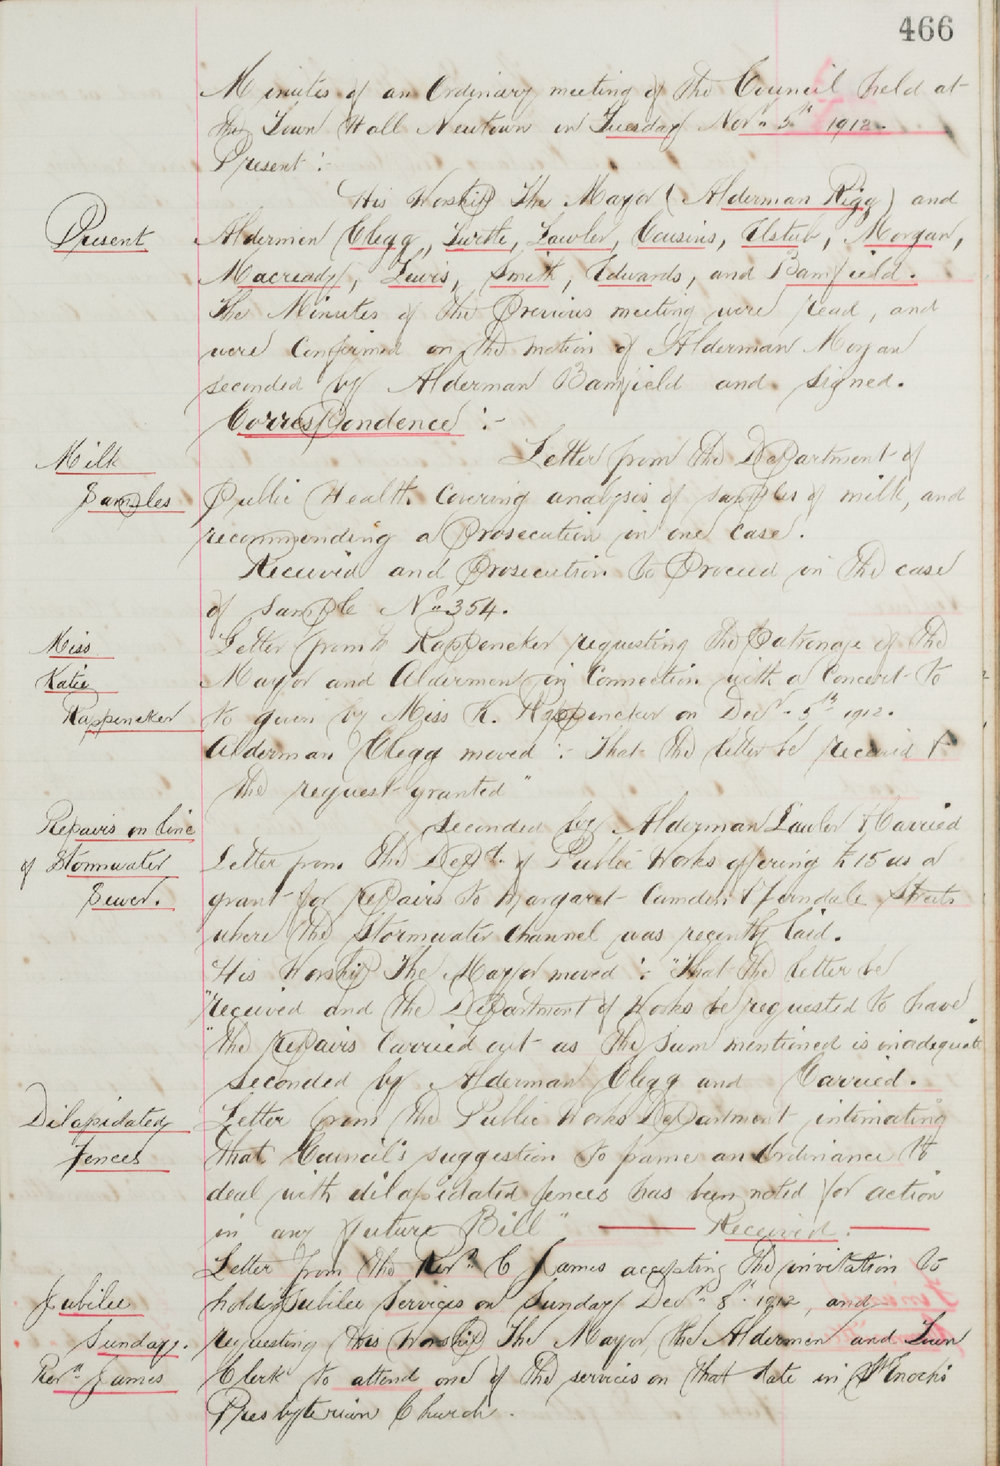 466
Minutes of an Ordinary meeting of the Council held at
the Town Hall Newtown on Tuesday Novr. 5th 1912.
Present :-
His Worship The Mayor (Alderman Rigg) and
Present
Aldermen Clegg, Turtle, Lawler, Cousins, Elstub, Morgan,
Macready, Lewis, Smith, Edwards, and Bamfield.
The Minutes of the Previous meeting were read, and
were Confirmed on the motion of Alderman Morgan
seconded by Alderman Bamfield and signed.
Correspondence :-
Milk
Samples
Letter from the Department of
Public Health covering analysis of samples of milk, and
recommending a Prosecution in one case.
Received and Prosecution to Proceed in the case
of sample No 354.
Miss
Katie
Rappeneker
Letter from Rappeneker requesting the Patronage of the
Mayor and Aldermen in Connection with a Concert to
to given by Miss K. Rappeneker on Decr. 5th 1912.
Alderman Clegg moved :- That the letter be received &
the request granted"
Seconded by Alderman Lawler & Carried
Repairs on line
of Stormwater
Sewer.
Letter from the Dept. of Public Works offering £15 as a
grant for repairs to Margaret Camden & Ferndale Streets
where the Stormwater Channel was recently laid.
His Worship The Mayor moved :- "That the letter be
"received and the Department of Works be requested to have
"the repairs Carried out as the sum mentioned is inadequate"
Seconded by Alderman Clegg and Carried.
Dilapidated
Fences
Letter from the Public Works Department intimating
that Council's suggestion to frame an Ordinance to
deal with dilapidated fences has been noted for action
in any future Bill" — Received. —
Jubilee
Sunday.
Revd. James
Letter from the Revd. C James accepting the invitation to
hold Jubilee Services on Sunday Decr. 8th 1912, and
requesting His Worship The Mayor, the Aldermen and Town
Clerk to attend one of the services on that date in St Enoch's
Presbyterian Church.